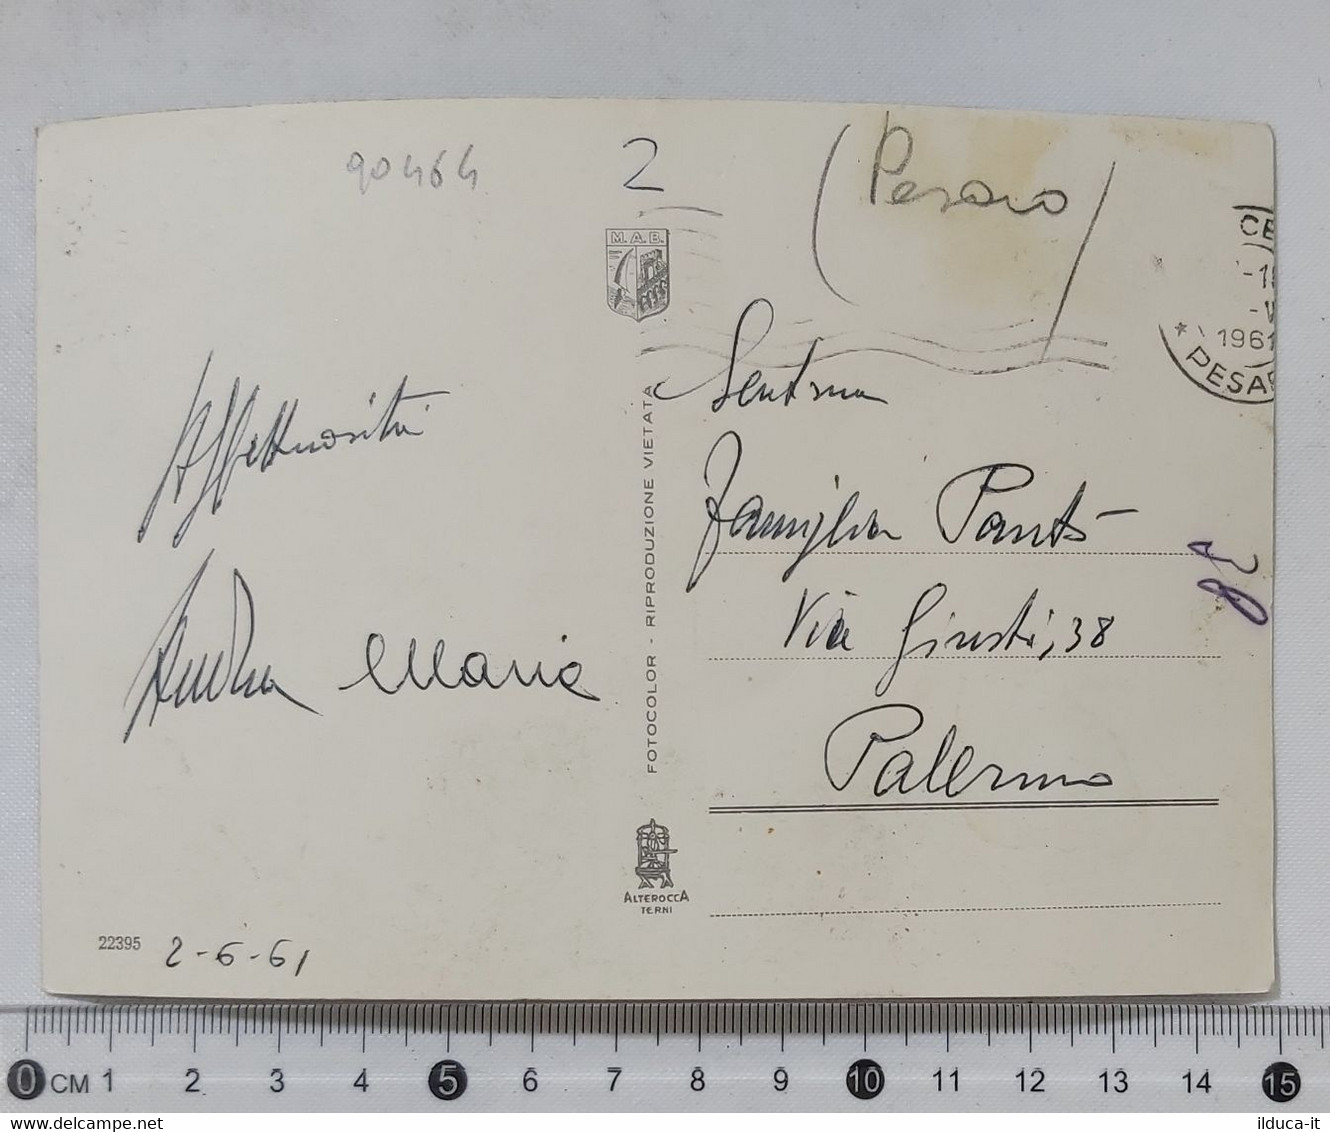 90464
2
(Pesaro)
M.A.B.
CE
1961
* PESA
Affettuosità
Andrea Maria
2-6-61
22395
FOTOCOLOR - RIPRODUZIONE VIETATA
ALTEROCCA
TERNI
Famiglia
Via Giusti, 38
Palermo
0 CM 1 2 3 4 5 6 7 8 9 10 11 12 13 14 15
www.delcampe.net
ilduca-it